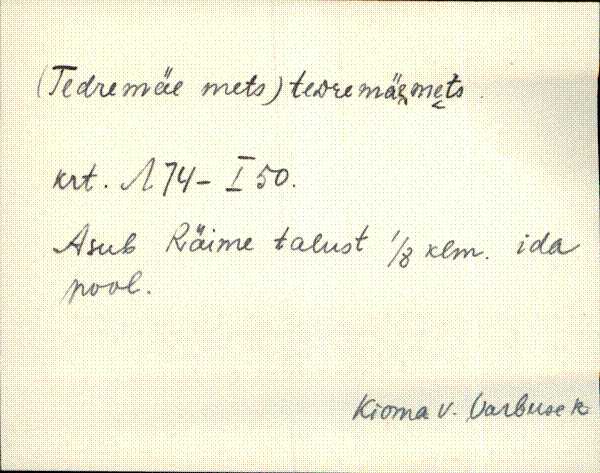 (Tedremäe mets) teᴅremäᴇmets.
krt. Λ 74 - I 50.
Asub Räime talust 1/8 klm. ida
pool.
Kioma v. Varbuse k